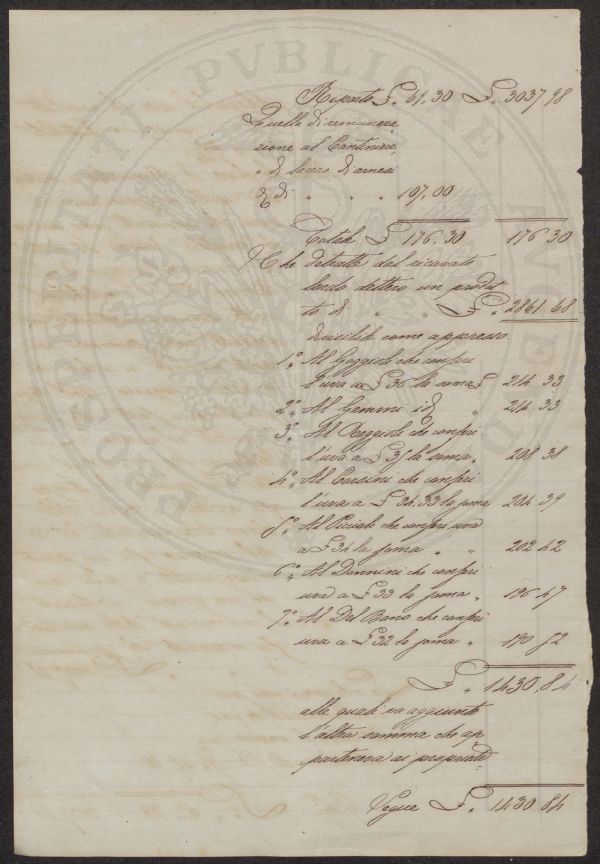 PROSPERITATI PVBLICAE AVGENDAE
Riporto £. 69.30 £. 3037 98
Quella di remunera
zione al Cantiniere,
" di locoro di arnesi
& di " " " 107.00
Totale £ 176.30 176 30
Che detratte dal ricavato
lordo dettero un prodot
to di " " £. 2861 68
divisibili come appresso.
1.° Al Goggioli che conferì
l'uva a £ 36 la soma £ 214 33
2.° Al Gemmi id " 214 33
3.° Al Reggioli che conferì
l'uva a £ 35 la soma " 208 38
4.° Al Corsini che conferì
l'uva a £ 34.33 la soma 204 39
5.° Al che conferì uva
a £ 34 la soma " " 202 42
6.° Al Dannini che conferì
uva a £ 33 la soma " 196 47
7.° Al Del Bano che conferì
uva a £ 32 la soma " 190 52
£ " 1430,84
alle quali va aggiunto
l'altra somma che ap
parteneva ai proprietà
Segue £. 1430 84